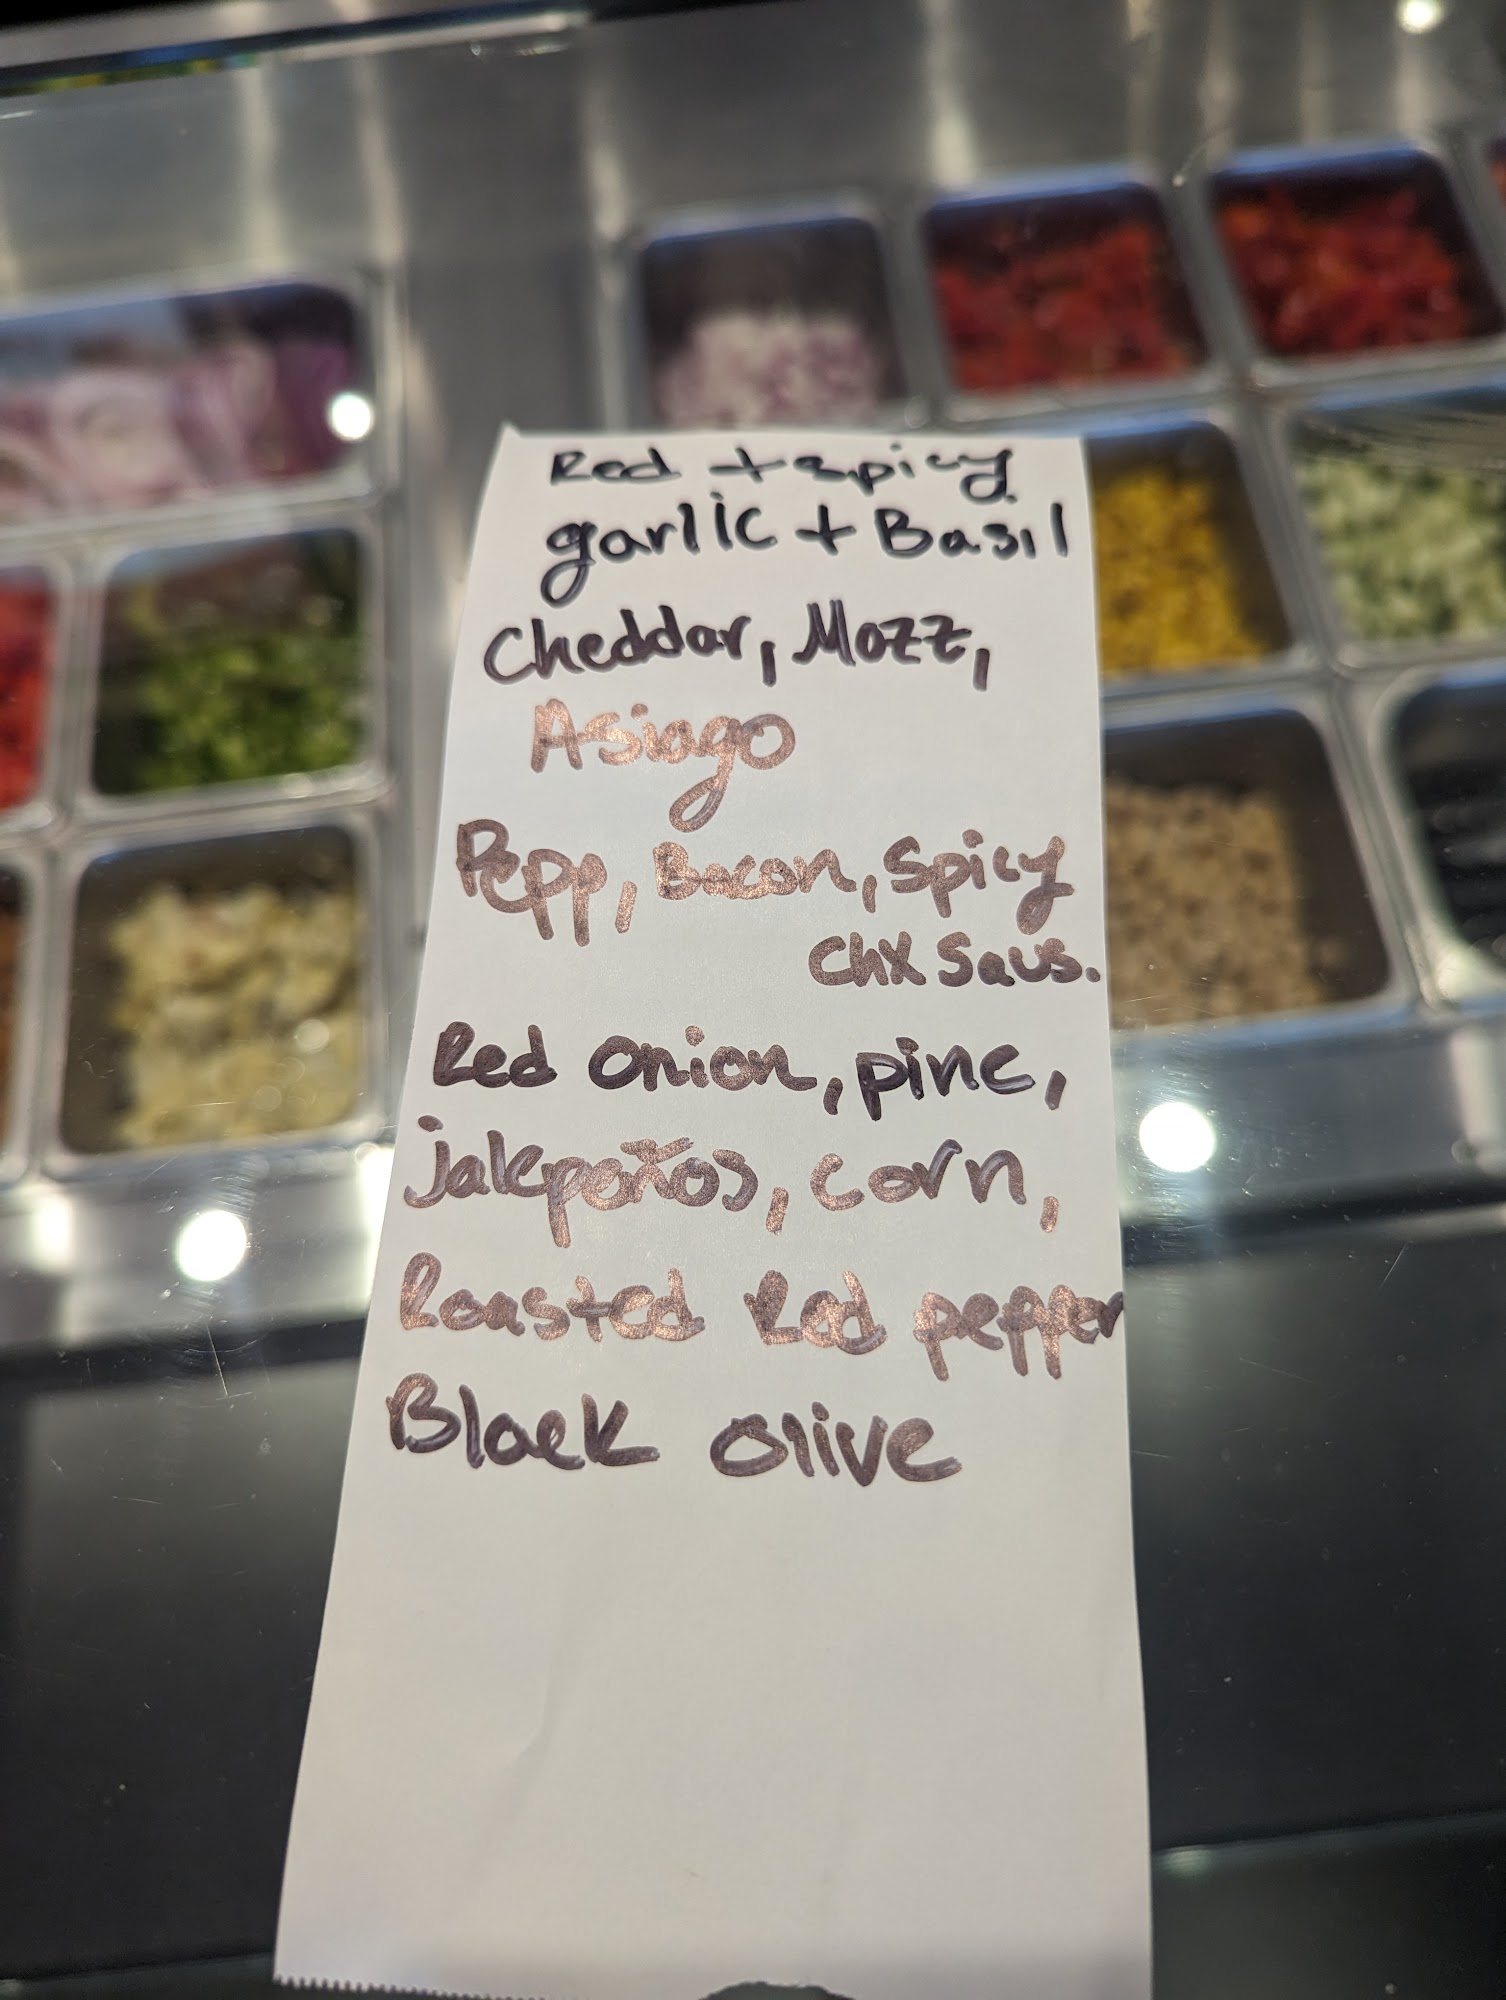 Red + spicy
garlic + Basil
Cheddar, Mozz,
Asiago
Pepp, Bacon, Spicy
Chx Saus.
Red onion, pine,
jalepeños, corn,
Roasted Red pepper
Black olive